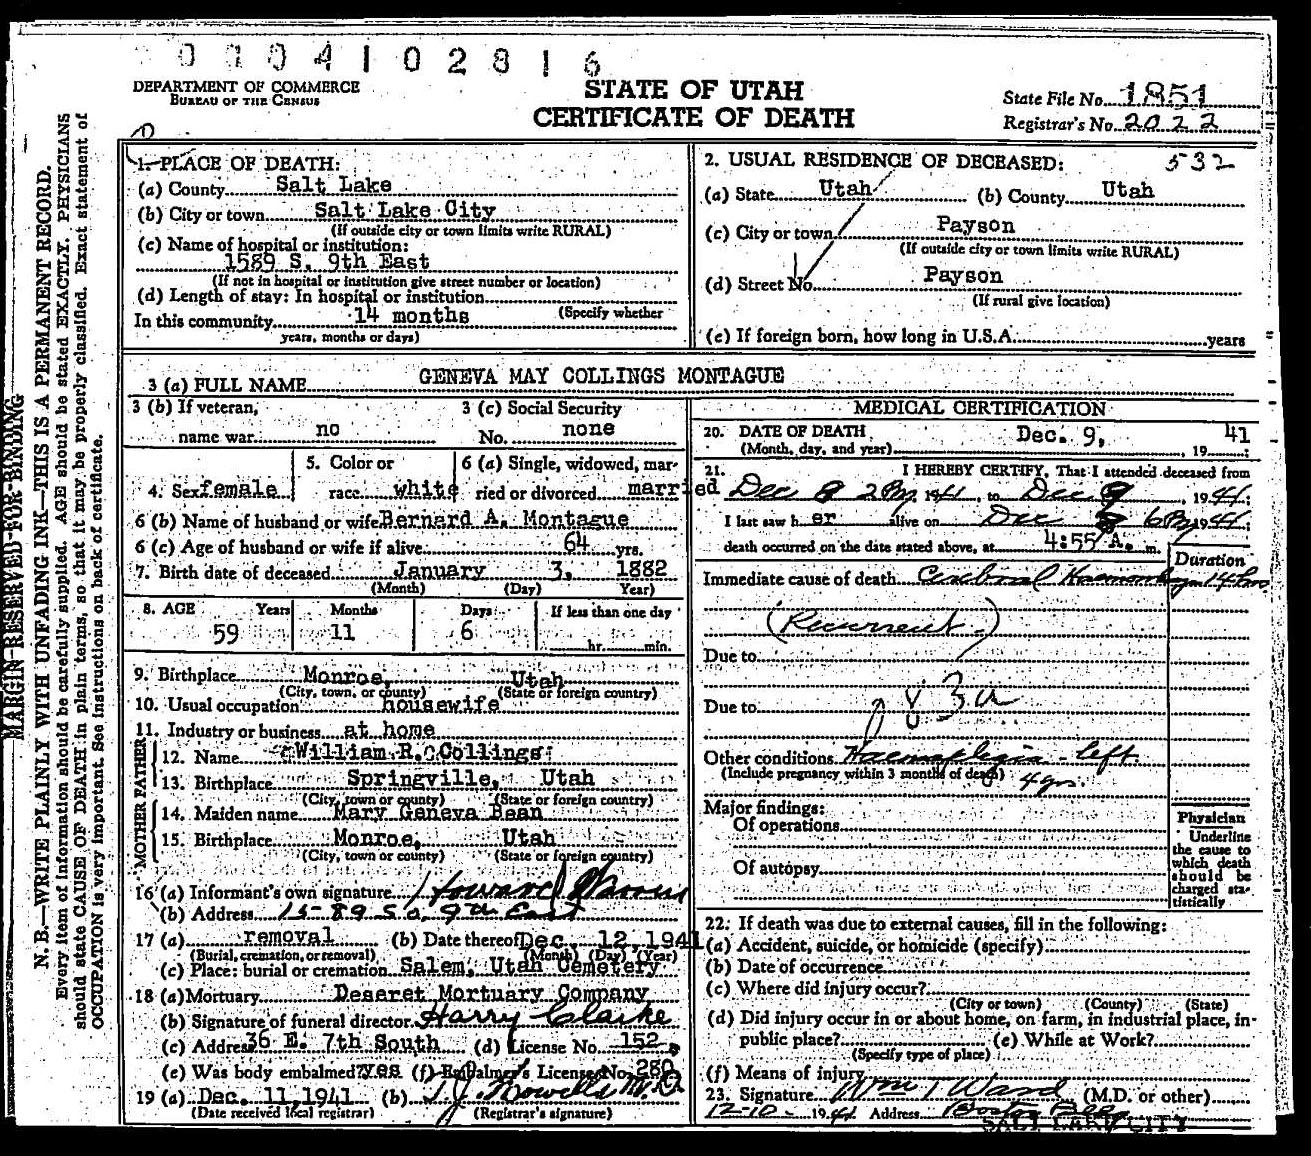 0004102816
DEPARTMENT OF COMMERCE
BUREAU OF THE CENSUS
STATE OF UTAH
CERTIFICATE OF DEATH
State File No. 1851
Registrar's No. 2022
MARGIN RESERVED FOR BINDING
N. B.—WRITE PLAINLY WITH UNFADING INK—THIS IS A PERMANENT RECORD.
Every item of information should be carefully supplied. AGE should be stated EXACTLY. PHYSICIANS
should state CAUSE OF DEATH in plain terms, so that it may be properly classified. Exact statement of
OCCUPATION is very important. See instructions on back of certificate.
1. PLACE OF DEATH:
(a) County Salt Lake
(b) City or town Salt Lake City
(If outside city or town limits write RURAL)
(c) Name of hospital or institution:
1589 S. 9th East
(If not in hospital or institution give street number or location)
(d) Length of stay: In hospital or institution
(Specify whether
In this community 14 months
years, months or days)
2. USUAL RESIDENCE OF DECEASED: 532
(a) State Utah (b) County Utah
(c) City or town Payson
(If outside city or town limits write RURAL)
(d) Street No. Payson
(If rural give location)
(e) If foreign born, how long in U.S.A. years
3 (a) FULL NAME GENEVA MAY COLLINGS MONTAGUE
3 (b) If veteran, name war no
3 (c) Social Security No. none
4. Sex female
5. Color or race white
6 (a) Single, widowed, married or divorced married
6 (b) Name of husband or wife Bernard A. Montague
6 (c) Age of husband or wife if alive 64 yrs.
7. Birth date of deceased January 3, 1882
(Month) (Day) Year)
8. AGE Years Months Days If less than one day
59 11 6 hr. min.
9. Birthplace Monroe, Utah
(City, town, or county) (State or foreign country)
10. Usual occupation housewife
11. Industry or business at home
FATHER
12. Name William R. Collings
13. Birthplace Springville, Utah
(City, town or county) (State or foreign country)
MOTHER
14. Maiden name Mary Geneva Bean
15. Birthplace Monroe, Utah
(City, town or county) (State or foreign country)
16 (a) Informant's own signature Howard
(b) Address 1589 So. 9th East
17 (a) removal (b) Date thereof Dec. 12, 1941
(Burial, cremation, or removal) (Month) (Day) (Year)
(c) Place: burial or cremation Salem, Utah Cemetery
18 (a) Mortuary Deseret Mortuary Company
(b) Signature of funeral director Harry Clarke
(c) Address 36 E. 7th South (d) License No. 152
(e) Was body embalmed? yes (f) Embalmer's License No. 280
19 (a) Dec. 11, 1941 (b) T. J. Howells M.D.
(Date received local registrar) (Registrar's signature)
MEDICAL CERTIFICATION
20. DATE OF DEATH Dec. 9, 1941
(Month, day, and year)
21. I HEREBY CERTIFY, That I attended deceased from
Dec 8 2 PM 1941, to Dec 9, 1941;
I last saw her alive on Dec 8 6 PM 1941;
death occurred on the date stated above, at 4:55 A. m.
Duration
Immediate cause of death Cerebral Haemorrhage 14 hrs.
(Recurrent)
Due to
Due to
83a
Other conditions Haemaplegia - left
(Include pregnancy within 3 months of death) 4 yrs.
Major findings:
Of operations
Of autopsy
Physician
Underline
the cause to
which death
should be
charged sta-
tistically
22. If death was due to external causes, fill in the following:
(a) Accident, suicide, or homicide (specify)
(b) Date of occurrence
(c) Where did injury occur?
(City or town) (County) (State)
(d) Did injury occur in or about home, on farm, in industrial place, in
public place? (e) While at Work?
(Specify type of place)
(f) Means of injury
23. Signature Wm T Ward (M.D. or other)
12-10-1941 Address Boston Bldg
SALT LAKE CITY